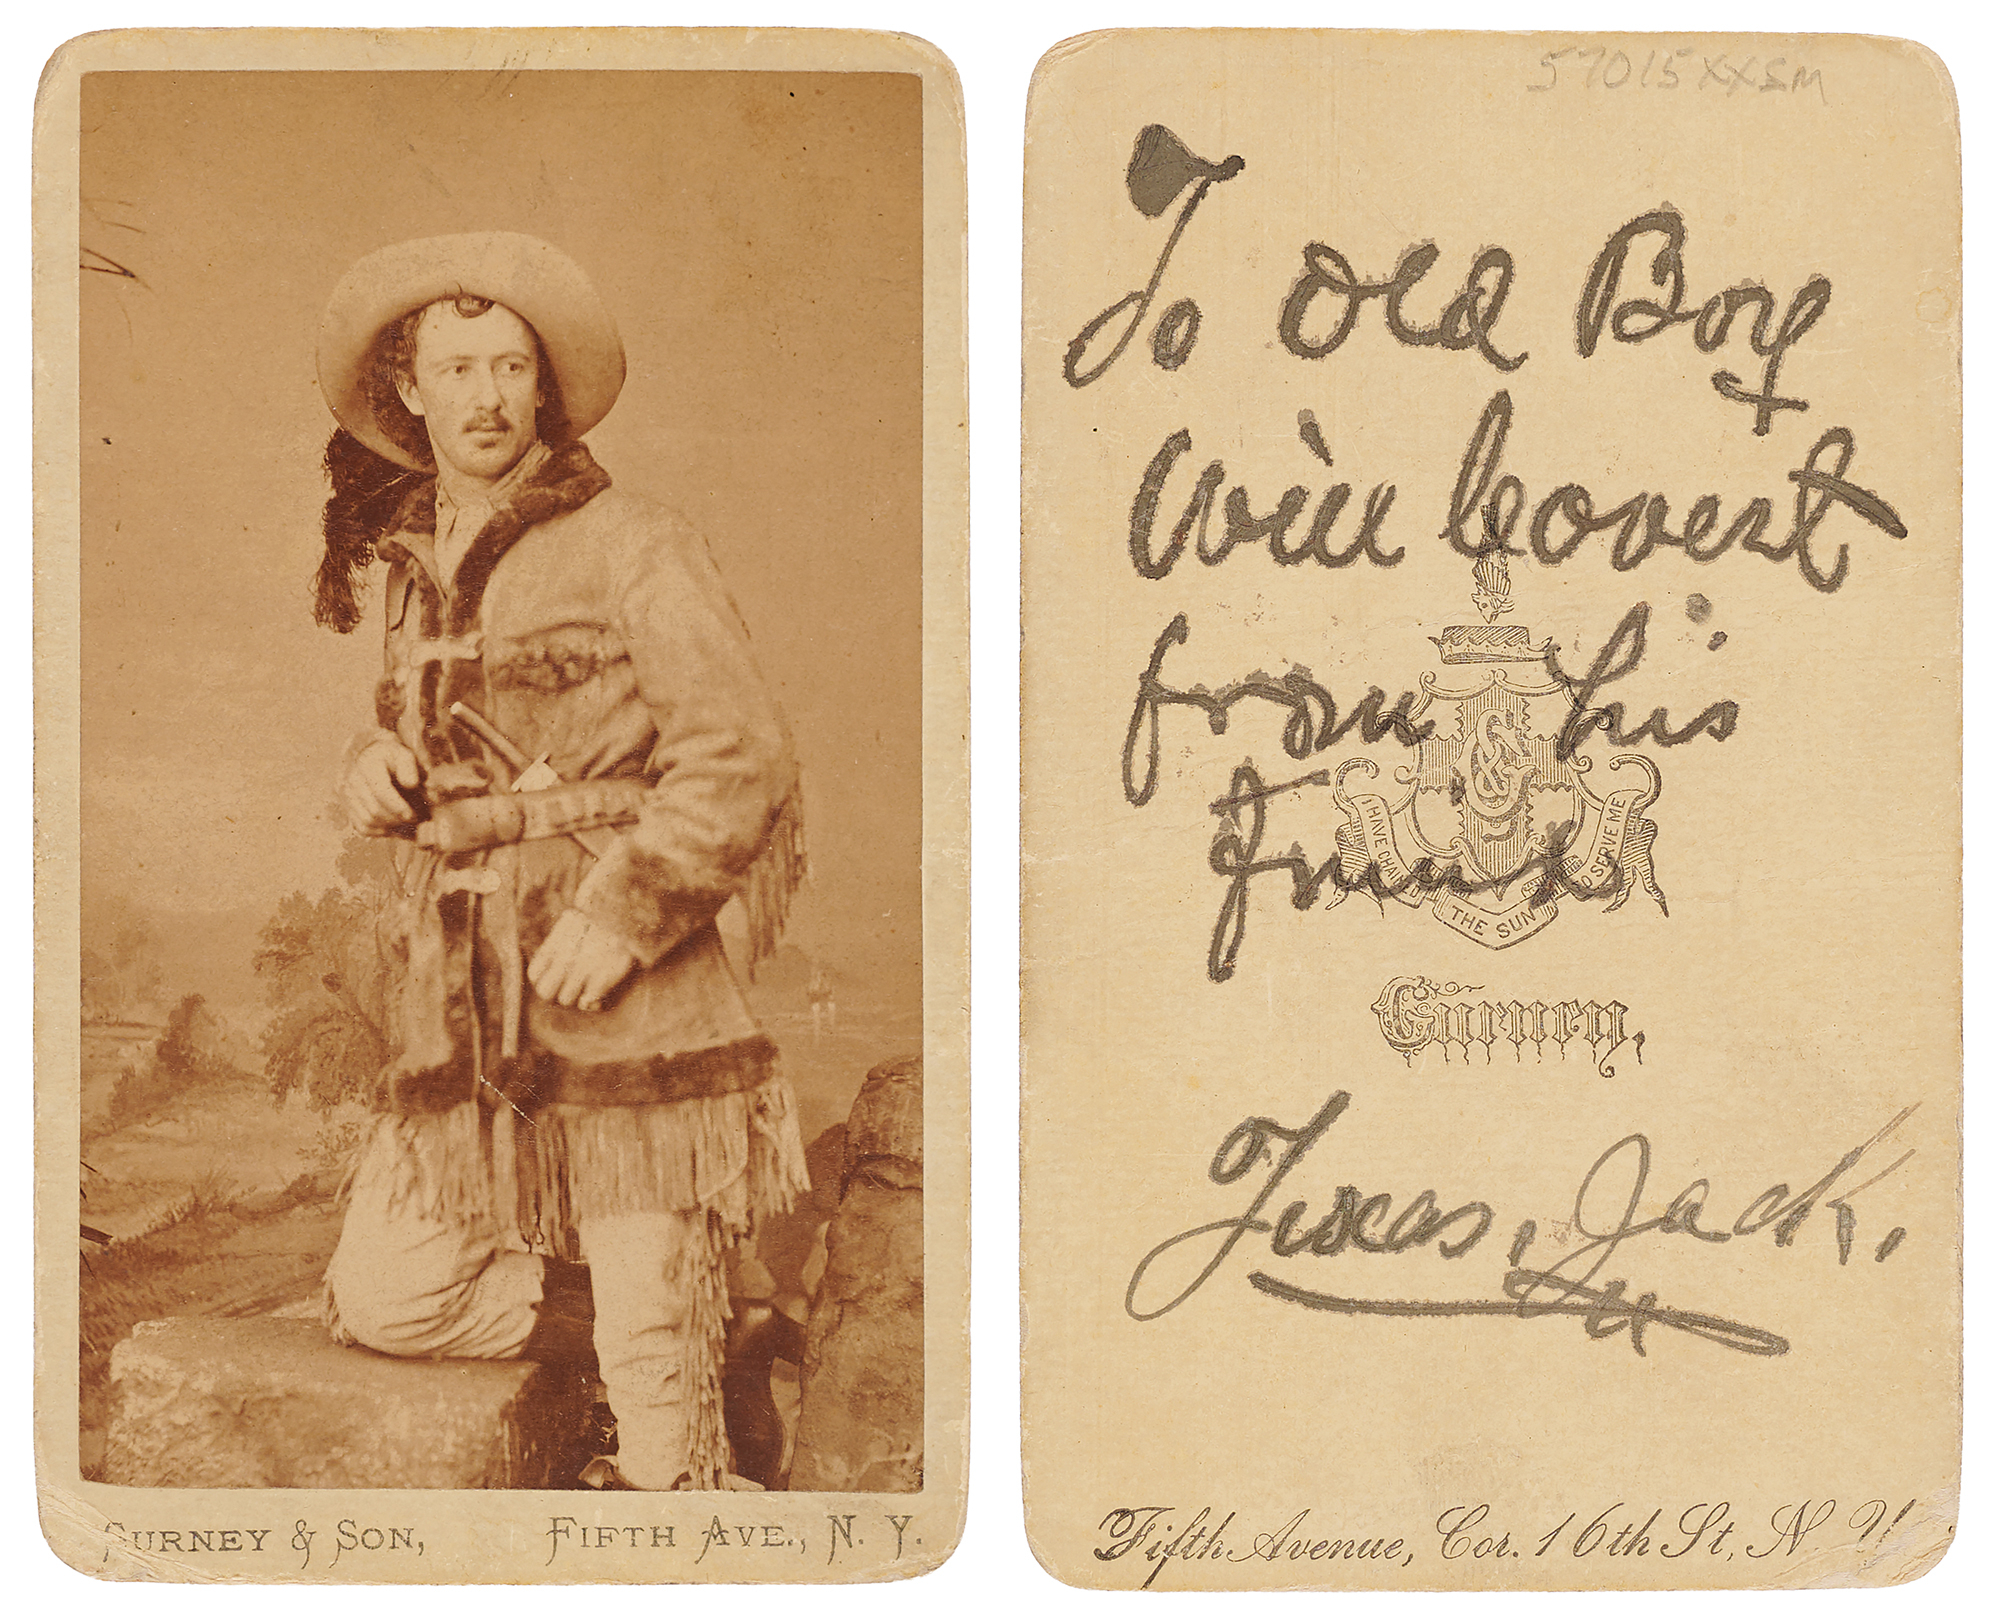 GURNEY & SON, FIFTH AVE., N. Y.
57015XXSM
To Old Boy
Will Covert
from his
Friend
G & S
I HAVE CHAINED THE SUN AND SERVE ME
Gurney,
Texas, Jack,
Fifth Avenue, Cor. 16th St, N. Y.